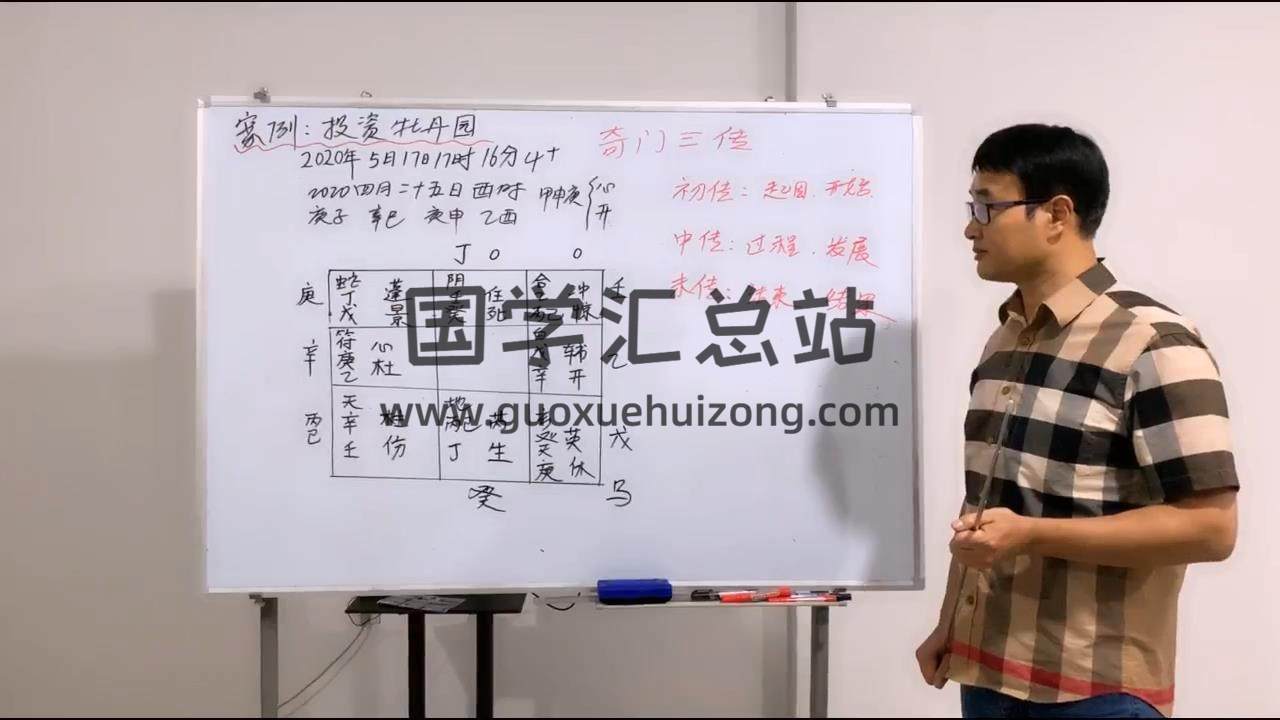 案例：投资牡丹园
2020年5月17日17时16分 4+
2020四月二十五日酉时 甲申庚 心
庚子 辛巳 庚申 乙酉 开
奇门三传
初传：起因.开始.
中传：过程.发展
末传：结束.结果
丁 0 0
庚 蛇 蓬 阴 任 壬
丁 景 死
戊
辛 符 心 乙
庚 杜 戊
乙 辛 开
丙己 天 地 英 戊
辛 癸
壬 丁 生 庚 休
癸 马
国学汇总站
www.guoxuehuizong.com